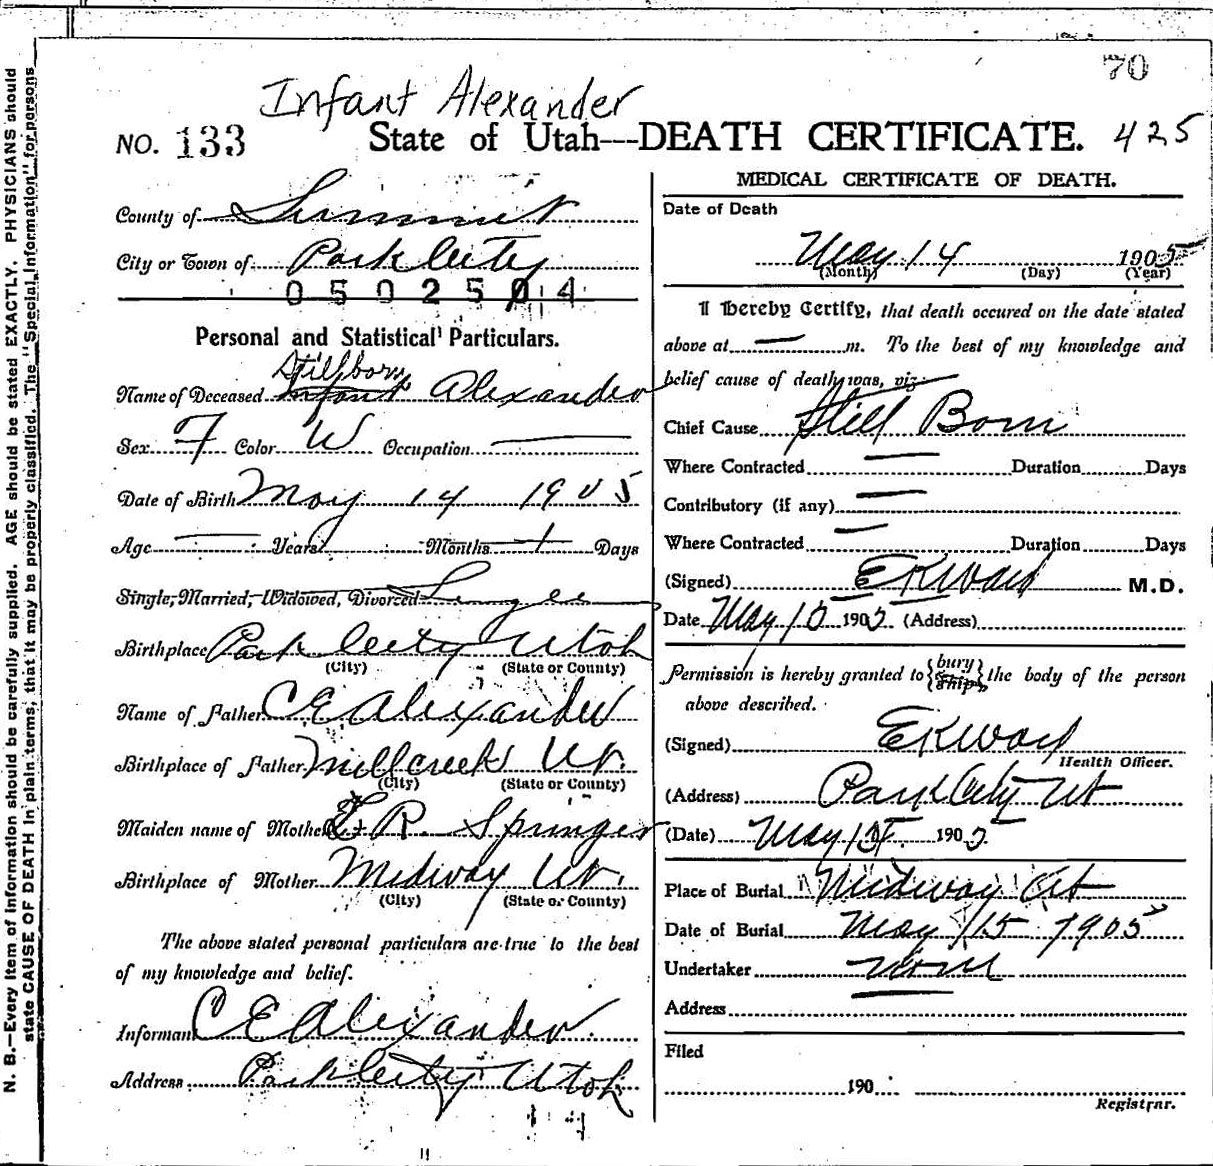 70
Infant Alexander
NO. 133 State of Utah---DEATH CERTIFICATE. 425
County of Summit
City or Town of Park City
0502504
Personal and Statistical Particulars.
Stillborn
Name of Deceased Infant Alexander
Sex F Color W Occupation
Date of Birth May 14 1905
Age — Years Months 1 Days
Single, Married, Widowed, Divorced Single
Birthplace Park City Utah
(City) (State or County)
Name of Father C E Alexander
Birthplace of Father Millcreek Ut.
(City) (State or County)
Maiden name of Mother R. Springer
Birthplace of Mother Midway Ut.
(City) (State or County)
The above stated personal particulars are true to the best
of my knowledge and belief.
Informant C E Alexander
Address Park City Utah
MEDICAL CERTIFICATE OF DEATH.
Date of Death
May 14 1905
(Month) (Day) (Year)
I hereby Certify, that death occured on the date stated
above at — m. To the best of my knowledge and
belief cause of death was, viz:
Chief Cause Still Born
Where Contracted — Duration Days
Contributory (if any) —
Where Contracted — Duration Days
(Signed) E K Ward M.D.
Date May 15 1905 (Address)
Permission is hereby granted to {bury ship} the body of the person
above described.
(Signed) E K Ward
Health Officer.
(Address) Park City Ut
(Date) May 15 1905
Place of Burial Midway Ut
Date of Burial May 15 1905
Undertaker None
Address
Filed
190
Registrar.
N. B.—Every item of information should be carefully supplied. AGE should be stated EXACTLY. PHYSICIANS should
state CAUSE OF DEATH in plain terms, that it may be properly classified. The "Special Information" for persons